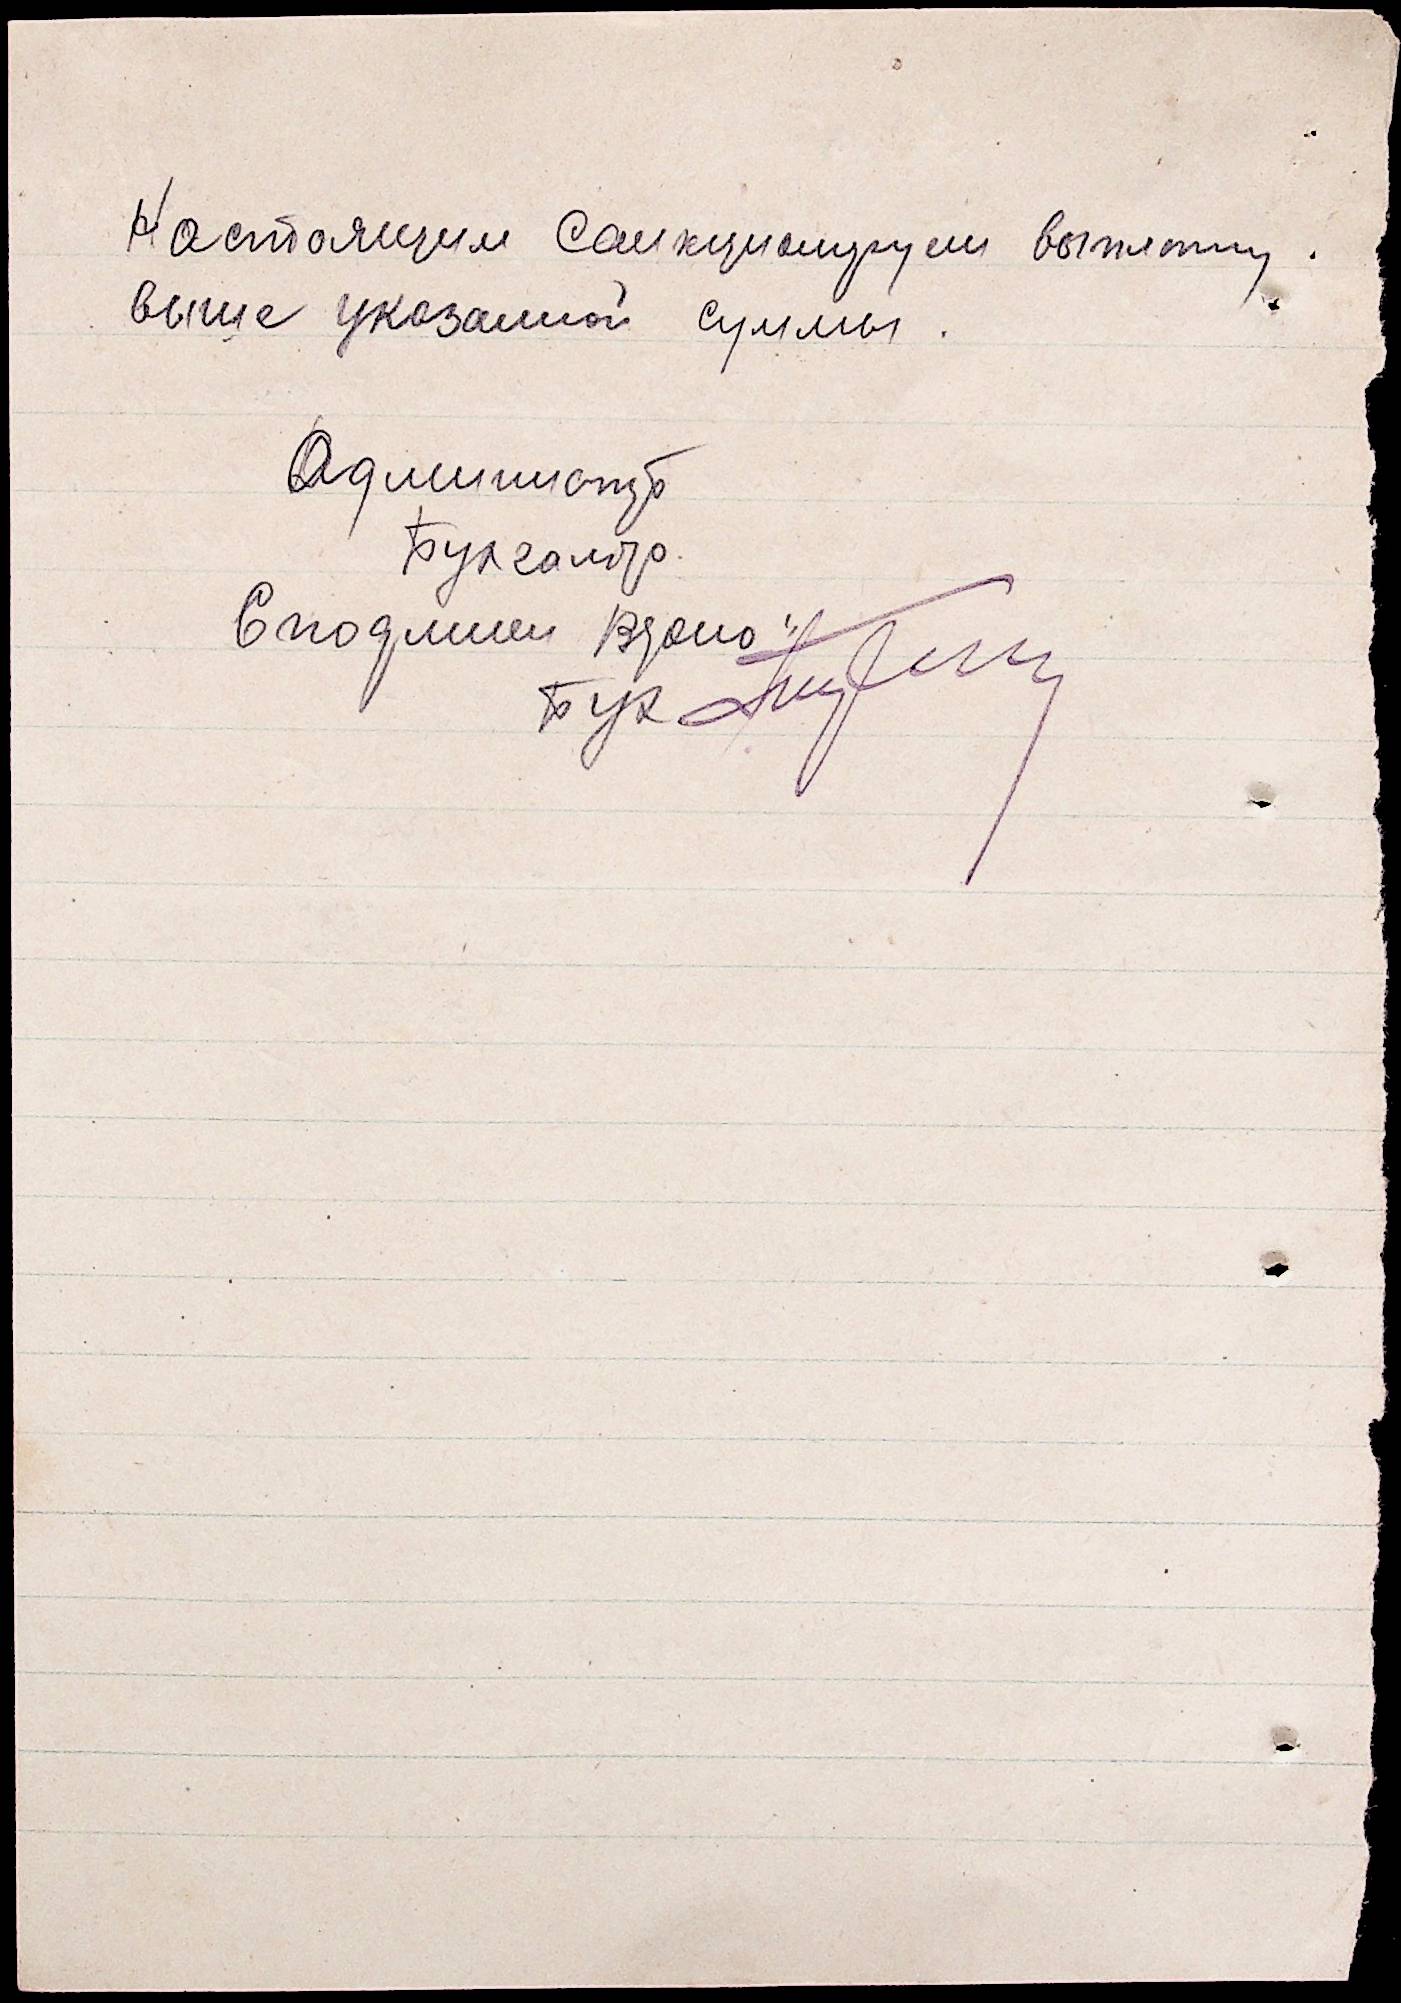 Настоящим Санкционируем выплату.
выше указанной суммы.
Администр
Бухгалтр.
С подлинем верно"
Бух